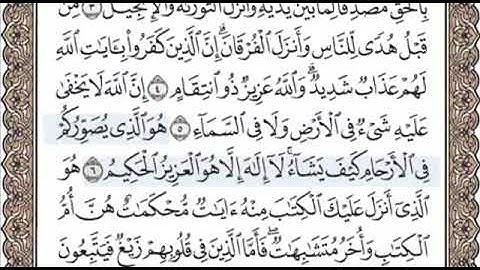 بِٱلْحَقِّ مُصَدِّقًا لِّمَا بَيْنَ يَدَيْهِ وَأَنزَلَ ٱلتَّوْرَىٰةَ وَٱلْإِنجِيلَ ٣ مِن
قَبْلُ هُدًى لِّلنَّاسِ وَأَنزَلَ ٱلْفُرْقَانَ ۗ إِنَّ ٱلَّذِينَ كَفَرُوا۟ بِـَٔايَـٰتِ ٱللَّهِ
لَهُمْ عَذَابٌ شَدِيدٌ ۗ وَٱللَّهُ عَزِيزٌ ذُو ٱنتِقَامٍ ٤ إِنَّ ٱللَّهَ لَا يَخْفَىٰ
عَلَيْهِ شَىْءٌ فِى ٱلْأَرْضِ وَلَا فِى ٱلسَّمَآءِ ٥ هُوَ ٱلَّذِى يُصَوِّرُكُمْ
فِى ٱلْأَرْحَامِ كَيْفَ يَشَآءُ ۚ لَآ إِلَـٰهَ إِلَّا هُوَ ٱلْعَزِيزُ ٱلْحَكِيمُ ٦ هُوَ
ٱلَّذِىٓ أَنزَلَ عَلَيْكَ ٱلْكِتَـٰبَ مِنْهُ ءَايَـٰتٌ مُّحْكَمَـٰتٌ هُنَّ أُمُّ
ٱلْكِتَـٰبِ وَأُخَرُ مُتَشَـٰبِهَـٰتٌ ۖ فَأَمَّا ٱلَّذِينَ فِى قُلُوبِهِمْ زَيْغٌ فَيَتَّبِعُونَ